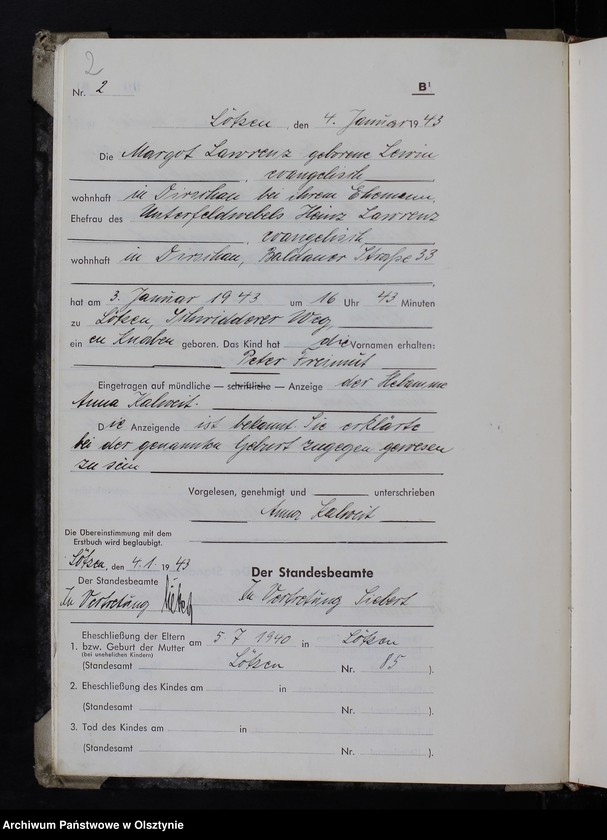 2
Nr. 2 B I
Lötzen, den 4. Januar 1943
Die Margot Lawrenz geborene Lewin
, evangelisch
wohnhaft in Dirschau bei ihrem Ehemann,
Ehefrau des Unterfeldwebels Heinz Lawrenz
, evangelisch
wohnhaft in Dirschau, Baldauer Straße 33
hat am 3. Januar 1943 um 16 Uhr 43 Minuten
zu Lötzen, Schwidderer Weg,
ein en Knaben geboren. Das Kind hat die Vornamen erhalten:
Peter Freimut
Eingetragen auf mündliche — schriftliche — Anzeige der Hebamme
Anna Kalweit.
D ie Anzeigende ist bekannt. Sie erklärte
bei der genannten Geburt zugegen gewesen
zu sein
Vorgelesen, genehmigt und unterschrieben
Anna Kalweit
Die Übereinstimmung mit dem
Erstbuch wird beglaubigt.
Lötzen, den 4.1. 1943
Der Standesbeamte
In Vertretung Siebert
Der Standesbeamte
In Vertretung Siebert
1. Eheschließung der Eltern bzw. Geburt der Mutter am 5.7.1940 in Lötzen
(bei unehelichen Kindern)
(Standesamt Lötzen Nr. 85 ).
2. Eheschließung des Kindes am in
(Standesamt Nr. ).
3. Tod des Kindes am in
(Standesamt Nr. ).
Archiwum Państwowe w Olsztynie